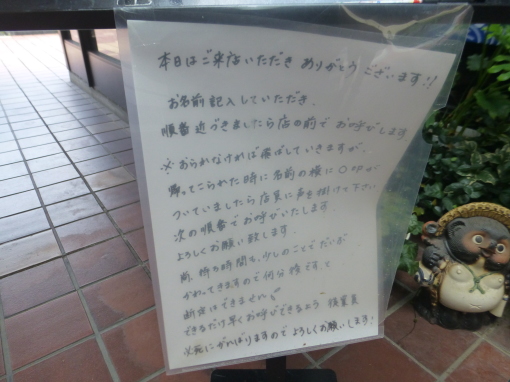 本日はご来店いただき ありがとう ございます!!
お名前記入していただき、
順番近づきましたら店の前で お呼びします
※おられなければ飛ばしていきますが、
帰ってこられた時に名前の横に〇印が
ついていましたら店員に声を掛けて下さい
次の順番でお呼びいたします
よろしくお願い致します。
尚、待ち時間も、少しのことで
かわってきますので何分待ちて
断定はできません
できるだけ早くお呼びできるよう 従業員
必死にがんばりますので よろしくお願いします。